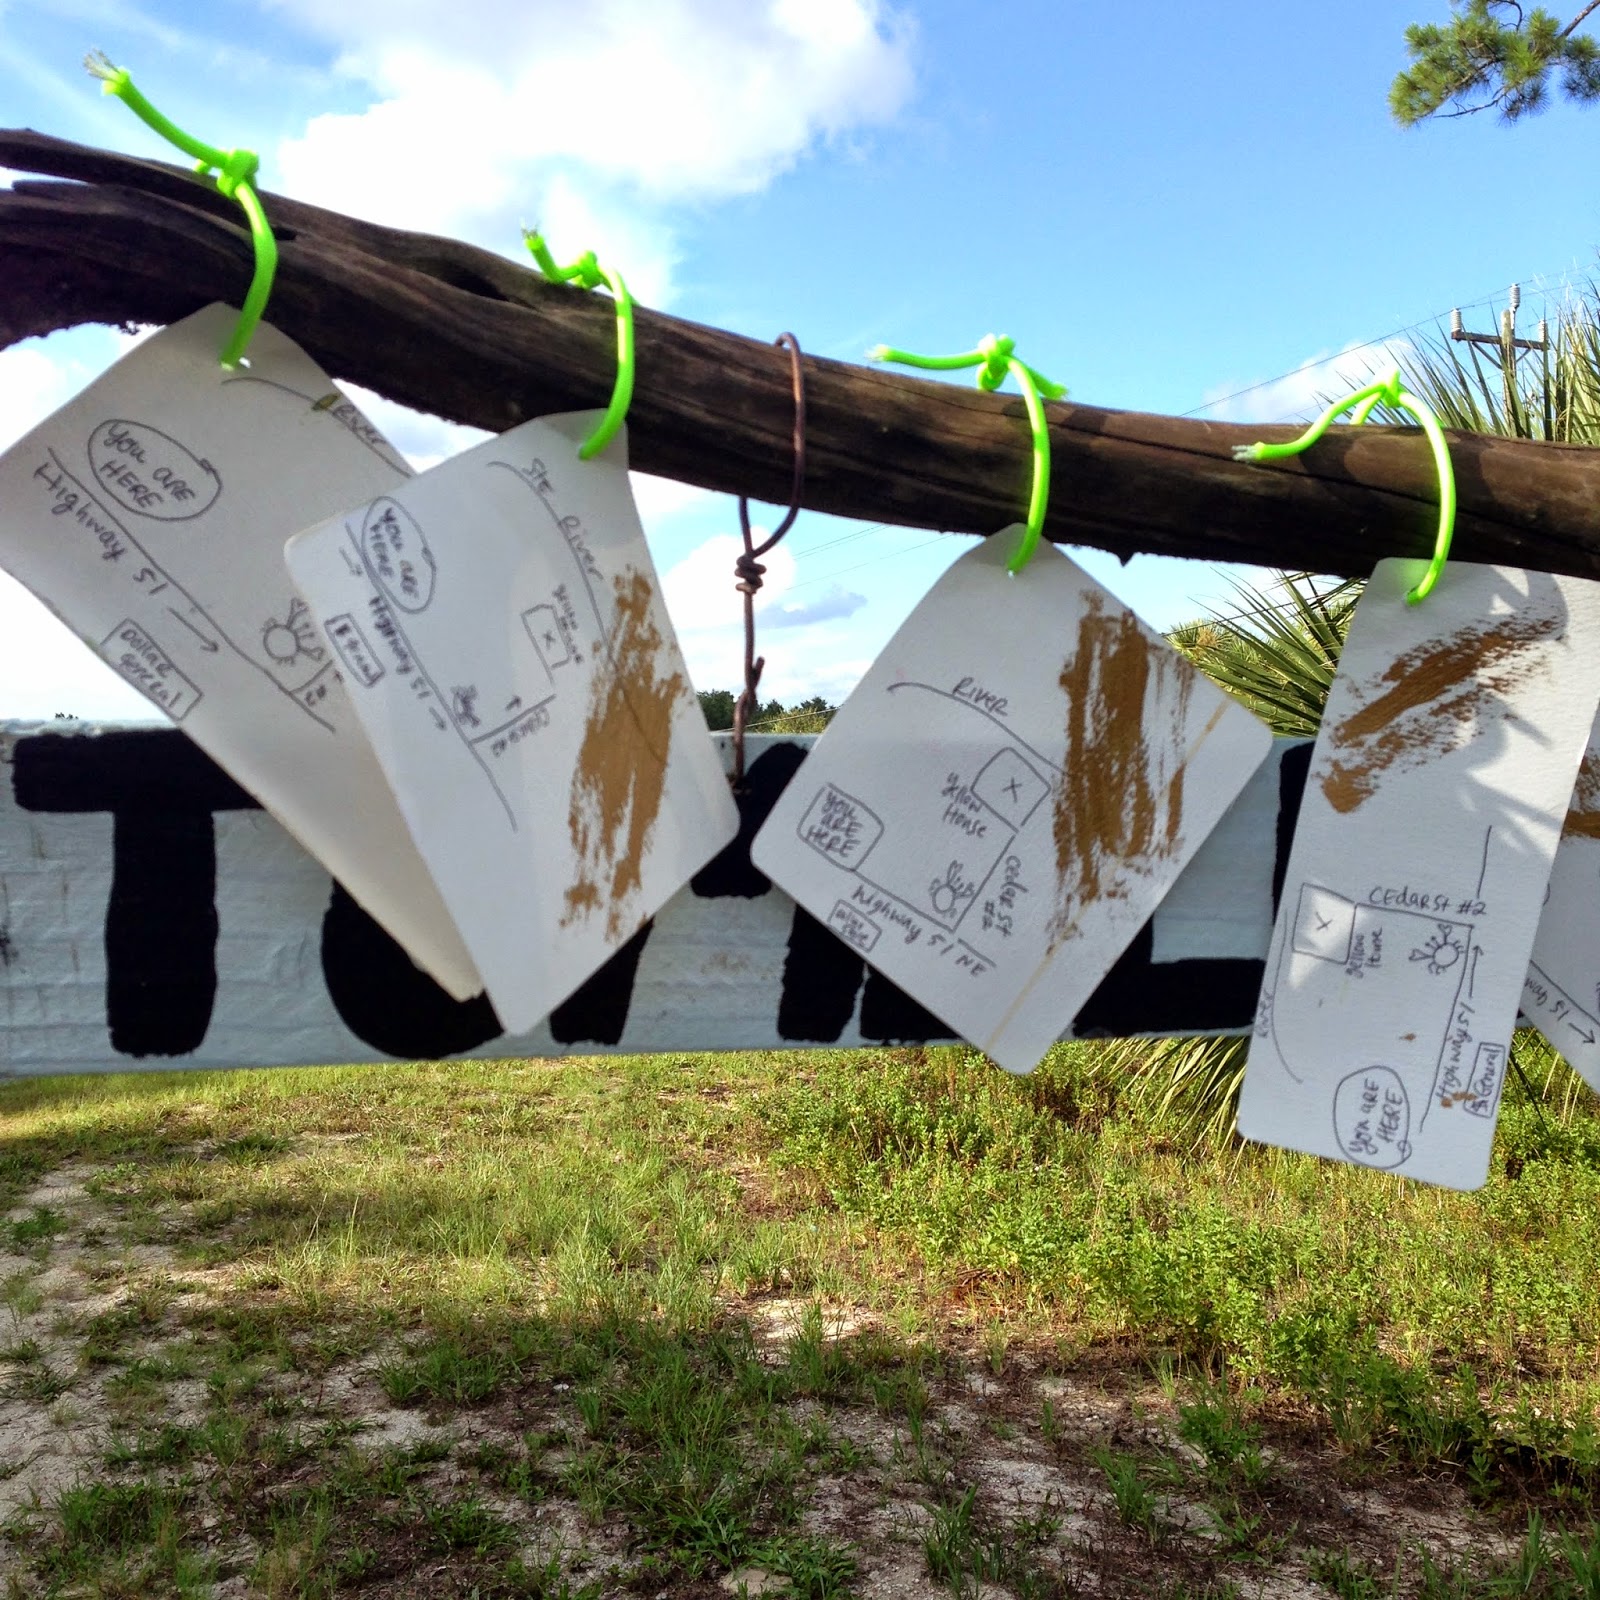 River
YOU ARE
HERE
Highway 51
Dollar
General
#2
Ste River
YOU ARE
HERE
Highway 51
$ General
Yellow House
Cedar St
#2
River
X
Yellow
House
YOU
ARE
HERE
Cedar St
#2
Highway 51 NE
CEdar St #2
X
Yellow
House
River
Highway 51
$ General
YOU ARE
HERE
way 51